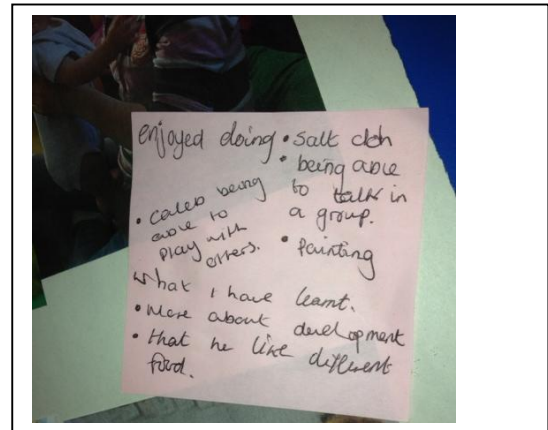 enjoyed doing • salt doh
• being able
to talk in
a group.
• Painting
• Caleb being
able to
play with
others.
What I have learnt.
• More about development
• that he like different
food.